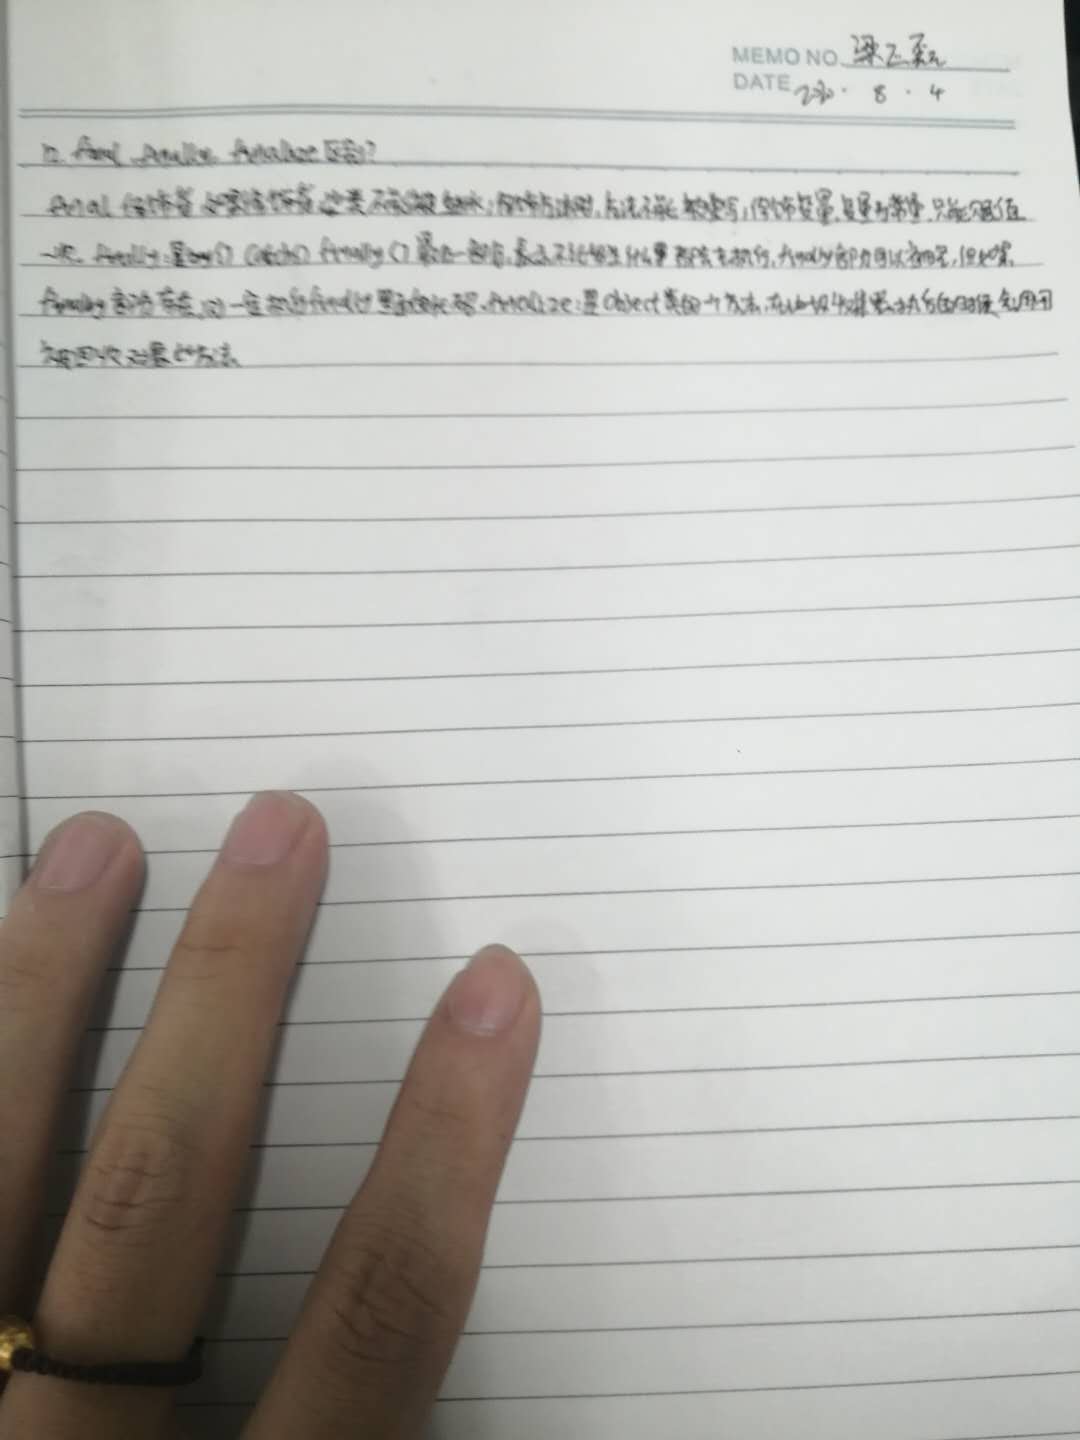 MEMO NO. 梁
DATE 8.4
12. final finally finalize区别?
final 修饰类 这类不能被继承;修饰方法时,方法不能被重写;修饰变量,变量为常量,只能赋值
一次。finally:是try{} catch{} finally{}最后一部分,表示不论发生什么事都会去执行,finally部分可以省略,但如果
finally部分存在,则一定执行finally里面的代码。finalize:是Object类的一个方法,在垃圾收集器执行的时候会调用
被回收对象的方法